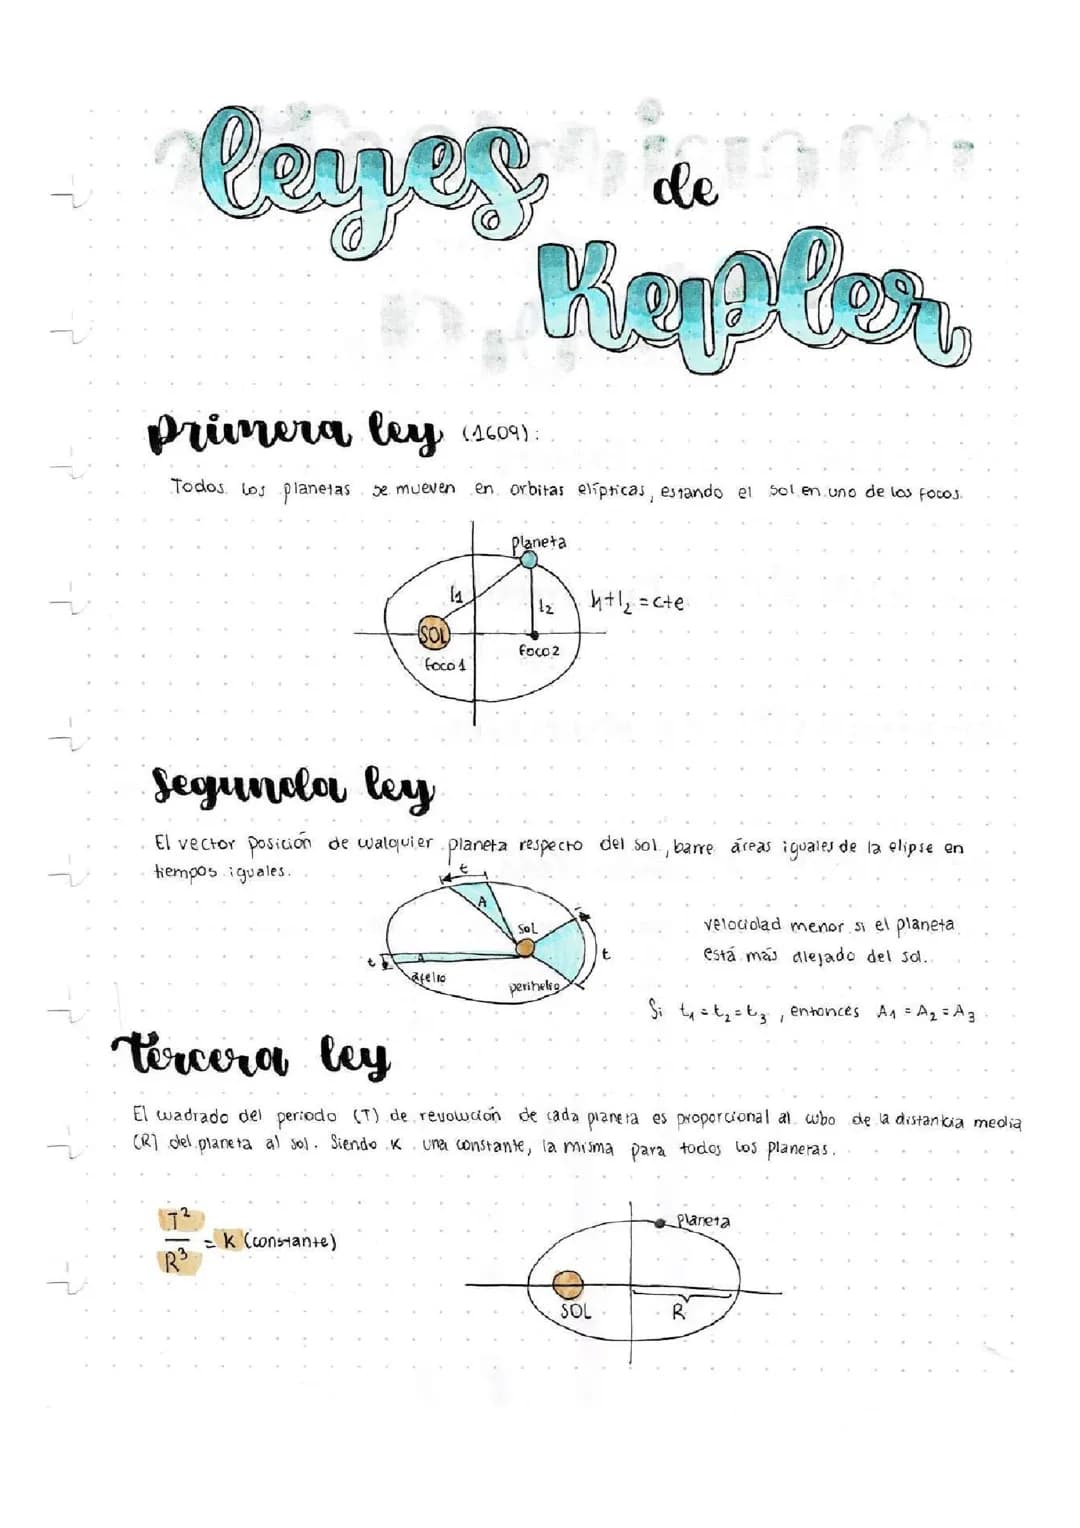 leyes de
Kepler
primera ley (1609):
Todos los planetas se mueven en orbitas elípticas, estando el sol en uno de los focos.
planeta
l1
l2
l1+l2 = cte
SOL
foco 1
foco 2
segunda ley
El vector posición de cualquier planeta respecto del sol, barre áreas iguales de la elipse en
tiempos iguales.
t
A
SOL
t
A
t
afelio
perihelio
velocidad menor si el planeta
está más alejado del sol.
Si t1 = t2 = t3, entonces A1 = A2 = A3
tercera ley
El cuadrado del periodo (T) de revolución de cada planeta es proporcional al cubo de la distancia media
(R) del planeta al sol. Siendo K una constante, la misma para todos los planetas.
T²
R³
= K (constante)
Planeta
SOL
R